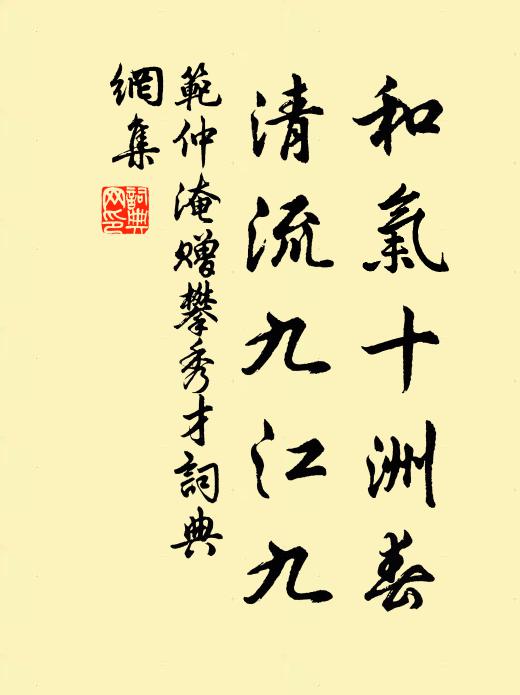 和氣十洲春
清流九江九
範仲淹贈攀秀才詞典
網集
詞典
网印